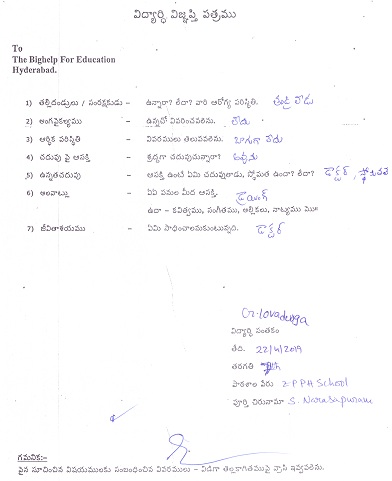 విద్యార్ధి విజ్ఞప్తి పత్రము
To
The Bighelp For Education
Hyderabad.
1) తల్లిదండ్రులు / సంరక్షకుడు – ఉన్నారా? లేదా? వారి ఆరోగ్య పరిస్థితి. తండ్రి లేడు
2) అంగవైకల్యము – ఉన్నచో వివరించవలెను. లేదు
3) ఆర్ధిక పరిస్థితి – వివరములు తెలుపవలెను. బాగుగా లేదు
4) చదువు పై ఆసక్తి – శ్రద్ధగా చదువుచున్నారా?
5) ఉన్నతచదువు – ఆసక్తి ఉంటే ఏమి చదువుతాడు, స్తోమత ఉందా? లేదా? డాక్టర్,
6) అలవాట్లు – ఏఏ పనుల మీద ఆసక్తి. డ్రాయింగ్
ఉదా – కవిత్వము, సంగీతము, అల్లికలు, నాట్యము మొ॥
7) జీవితాశయము – ఏమి సాధించాలనుకుంటున్నది. డాక్టర్
Ch. lovadurga
విద్యార్ధి సంతకం
తేది. 22/4/2019
తరగతి
పాఠశాల పేరు Z.PPH School
పూర్తి చిరునామా S. Narasapuram
గమనిక:-
పైన సూచించిన విషయములకు సంబంధించిన వివరములు – విడిగా తెల్లకాగితముపై వ్రాసి ఇవ్వవలెను.